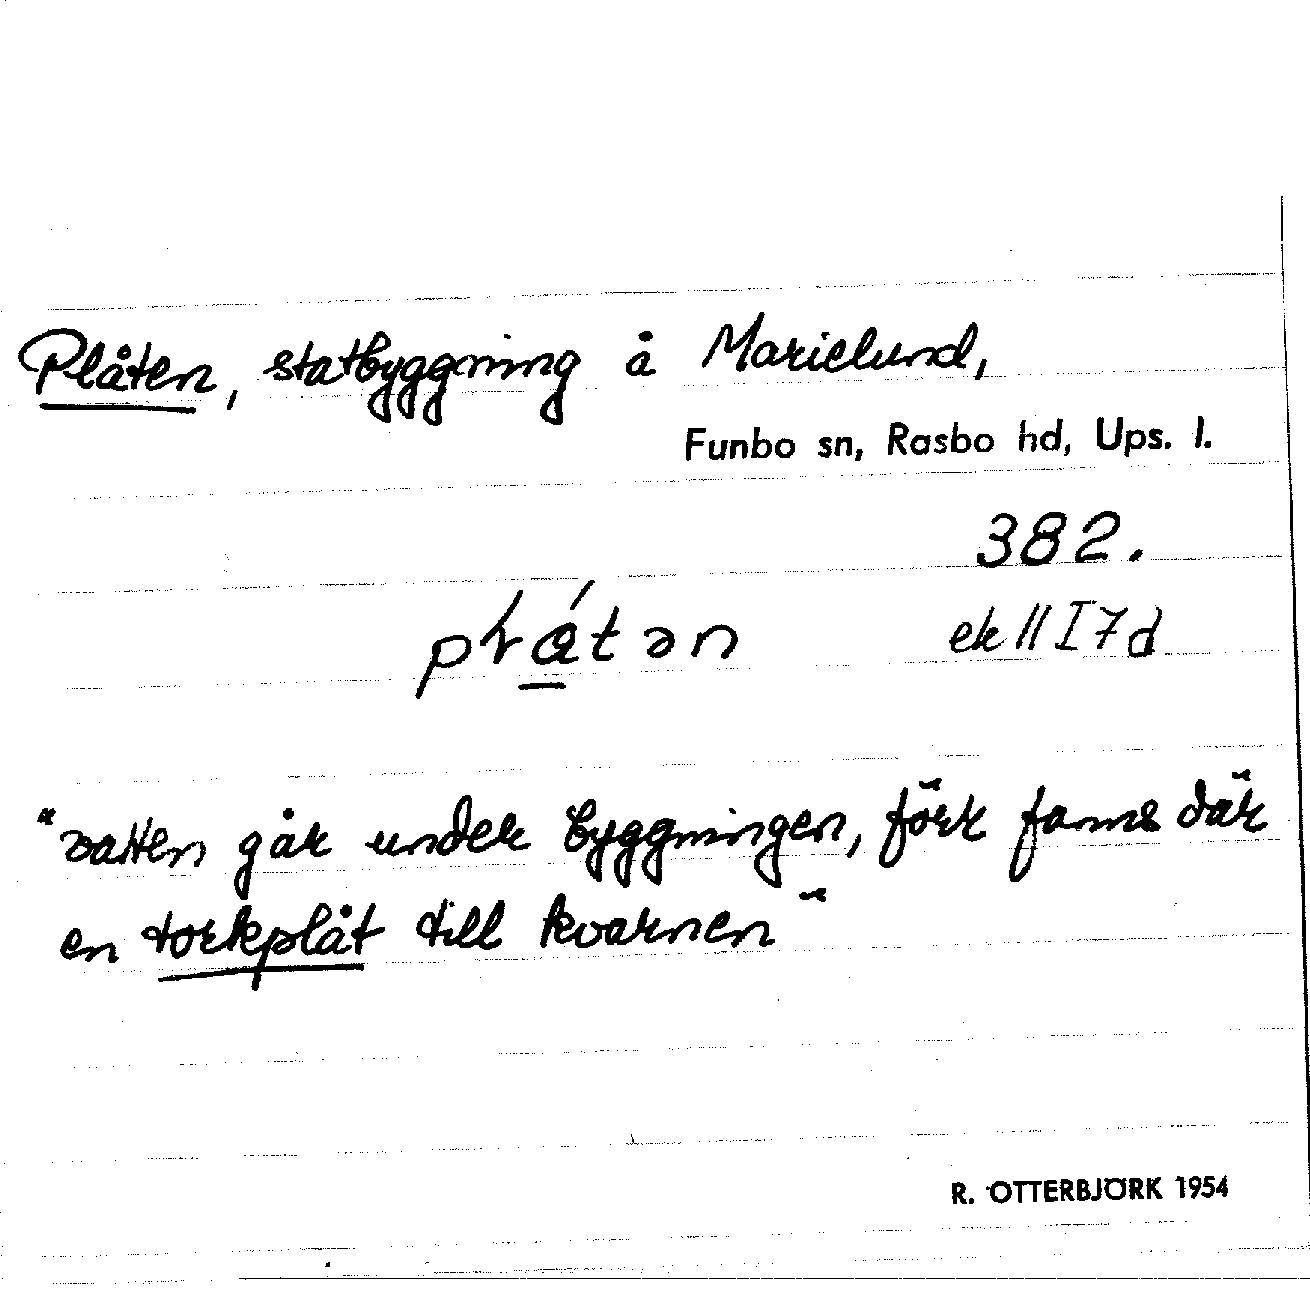 Plåten, statbyggning å Marielund,
Funbo sn, Rasbo hd, Ups. l.
382.
ek 11 I 7 d
"vatten går under byggningen, förr fanns där
en torkplåt till kvarnen"
R. OTTERBJÖRK 1954